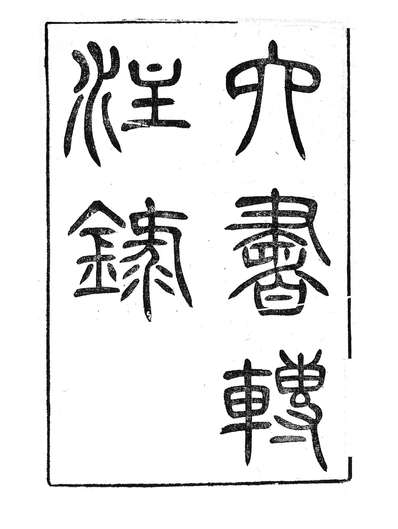 六書轉
注錄